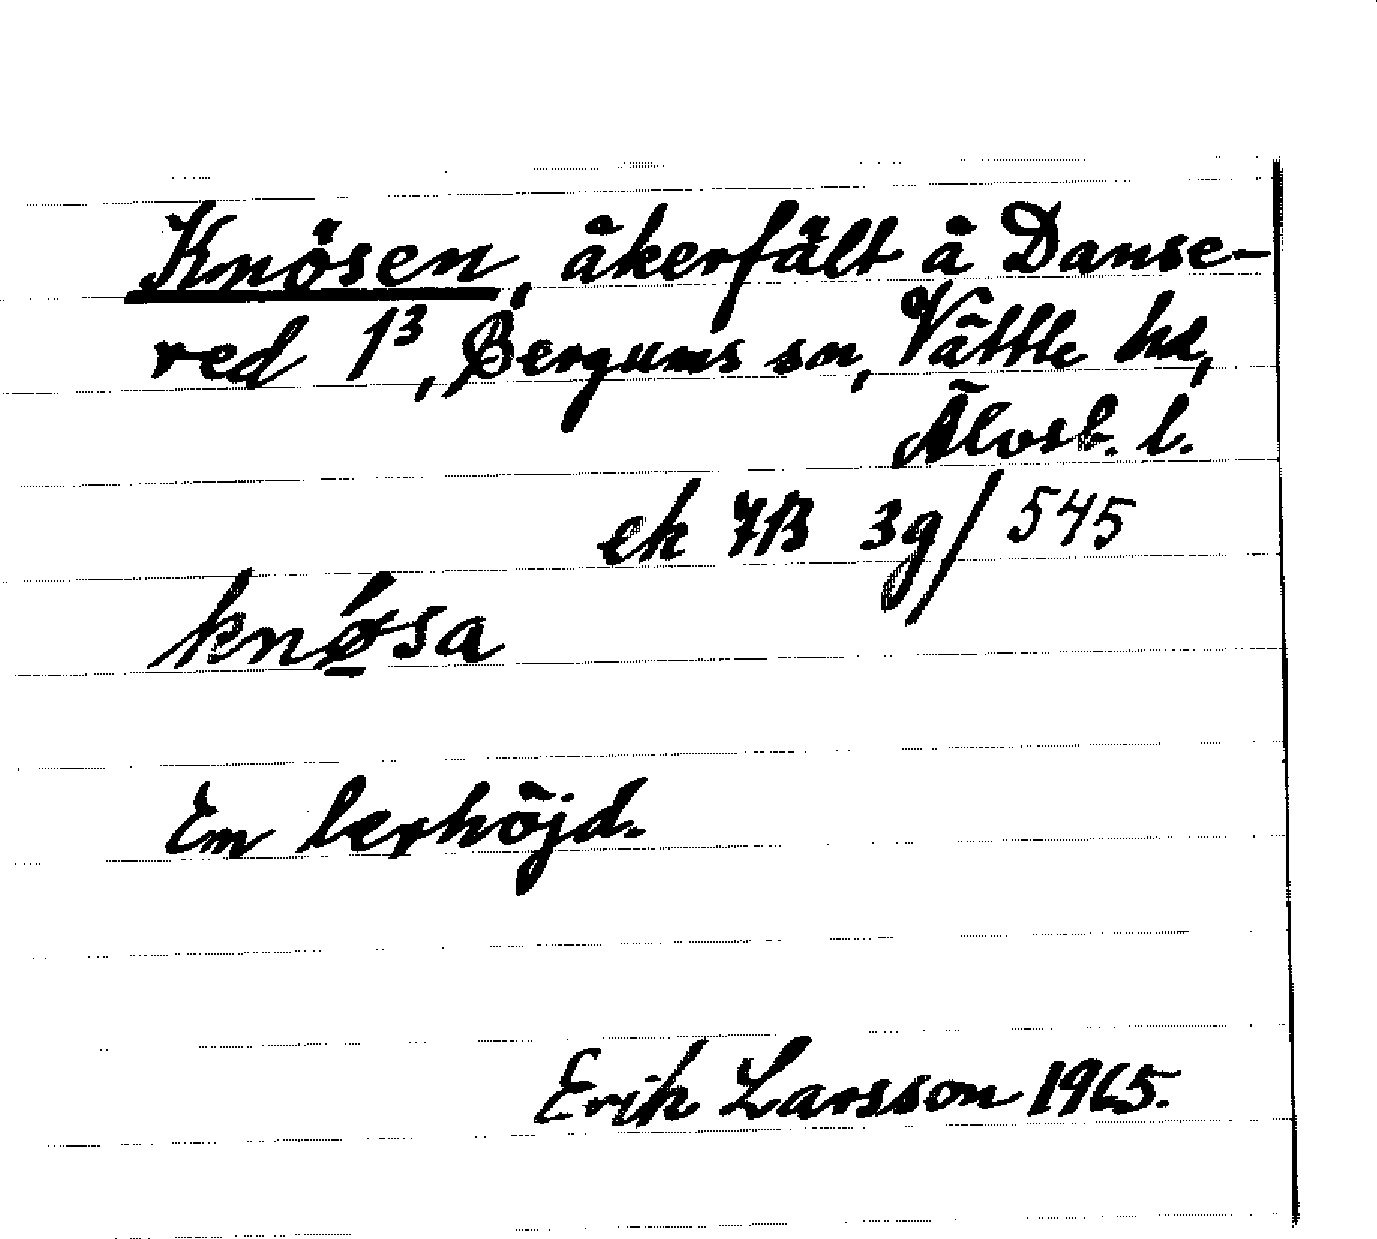 Knösen, åkerfält å Danse-
red 1³, Bergums sn, Vättle hd,
Älvsb. l.
ek 7B 3g/545
knǿ̱sa
En lerhöjd.
Erik Larsson 1965.